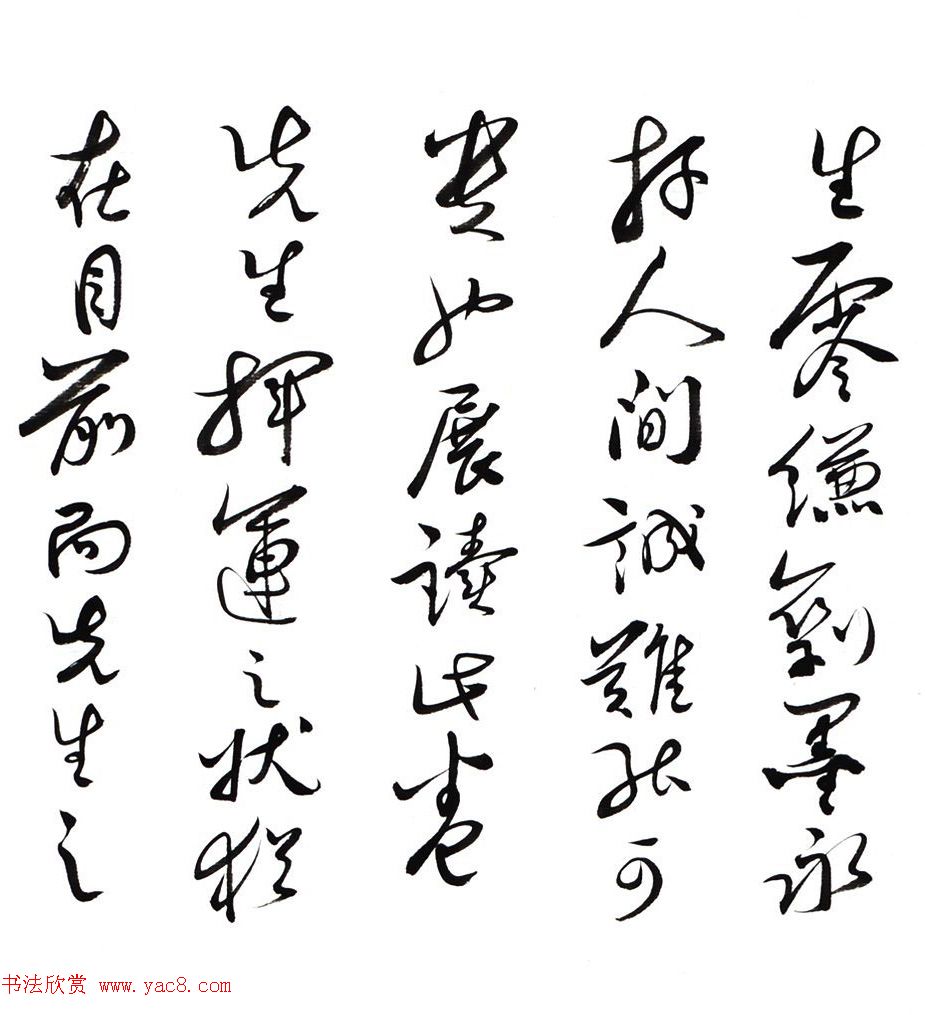 生零縑剩墨永
存人間誠難能可
貴也展讀此卷
先生揮運之狀猶
在目前而先生之
书法欣赏 www.yac8.com